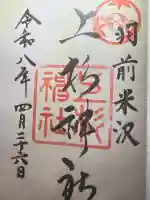 羽前米沢
上杉神社
令和八年四月二十六日